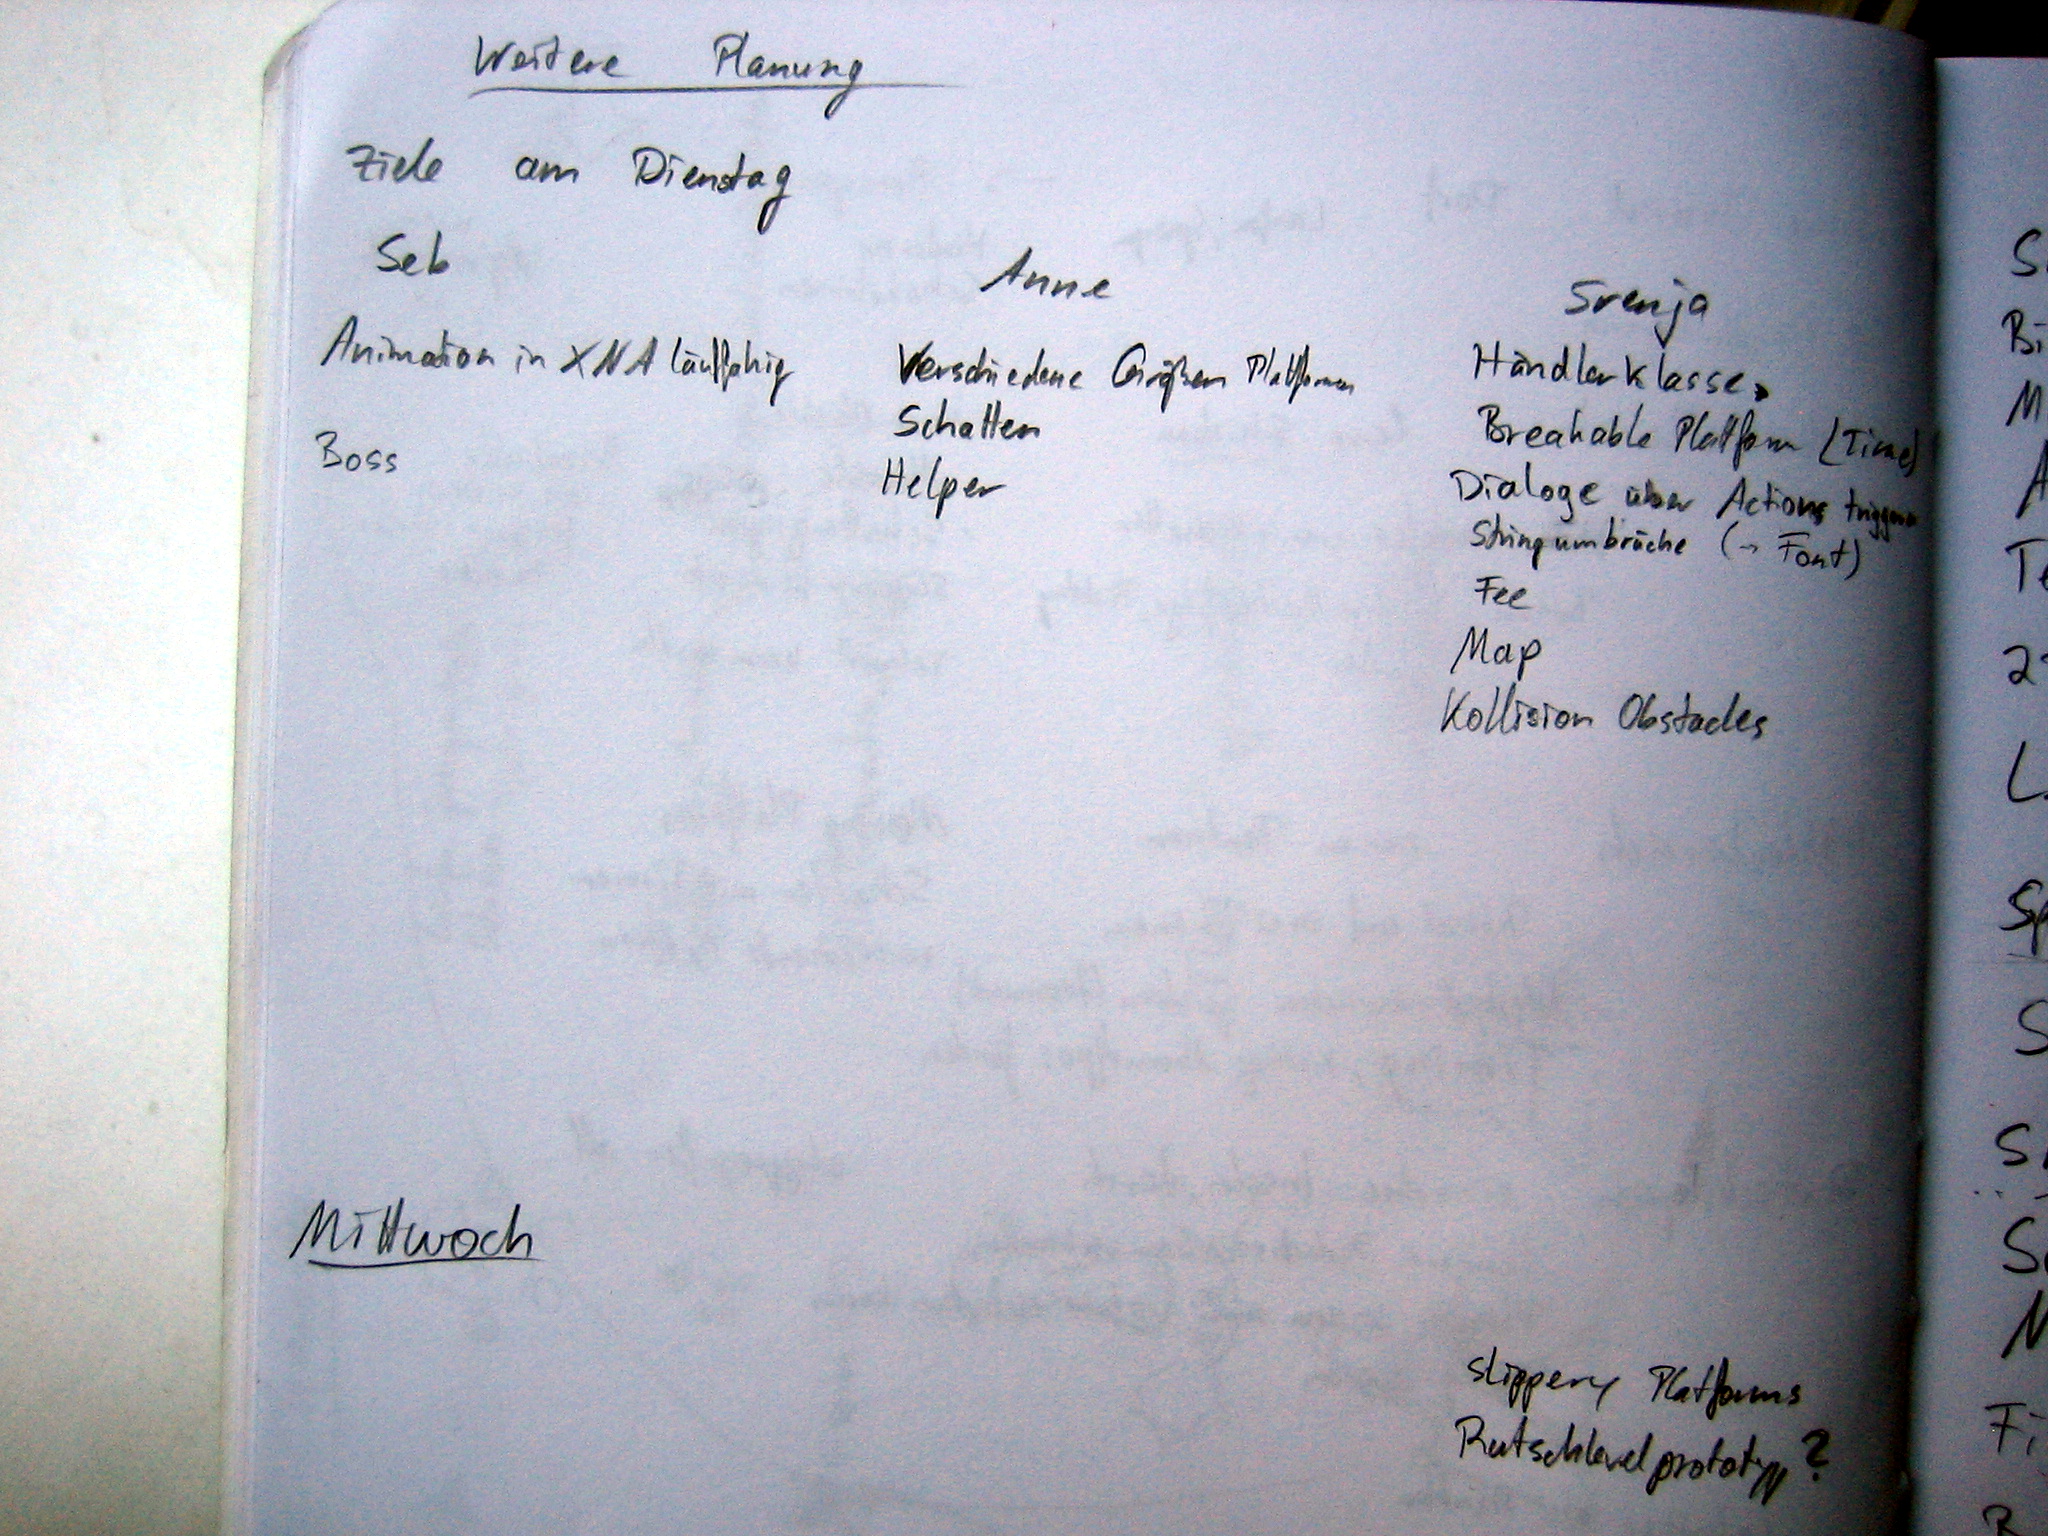 Weitere Planung
Ziele am Dienstag
Seb
Animation in XNA lauffähig
Boss
Anne
Verschiedene Größen Plattformen
Schatten
Helper
Svenja
Händlerklasse
Breakable Platform (Time)
Dialoge über Actions triggern
Stringumbrüche (→ Font)
Fee
Map
Kollision Obstacles
Mittwoch
slippery Platforms
Rutschlevelprototyp?